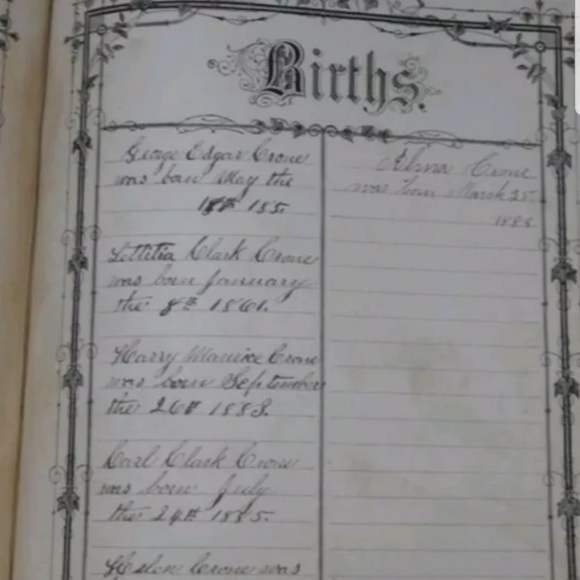 Births.
George Edgar Crone
was born May the
18th 185
Lettitia Clark Crone
was born January
the 8th 1861.
Harry Maurice Crone
was born September
the 26th 1883.
Carl Clark Crone
was born July
the 24th 1885.
Helen Crone was
Alma Crone
was born March 25